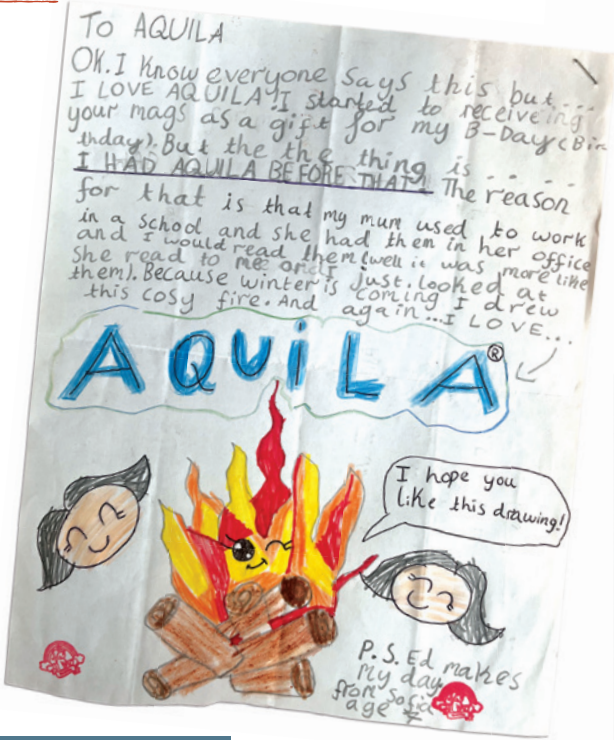 To AQUILA
OK. I know everyone says this but....
I LOVE AQUILA! I started to receiveing
your mags as a gift for my B-Day (Bir
thday). But the the thing is . . . . .
I HAD AQUILA BEFORE THAT! The reason
for that is that my mum used to work
in a school and she had them in her office
and I would read them (well it was more like
she read to me and I just looked at
them). Because winter is coming I drew
this cosy fire. And again...I LOVE...
AQUiLA®
I hope you
like this drawing!
P.S. Ed makes
my day
from Sofia
age 7